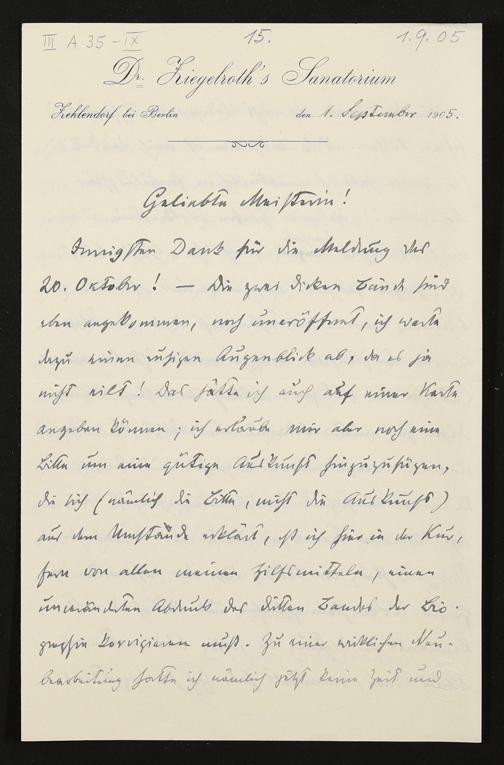 III A 35 – IX
15.
1.9.05
Dr. Ziegelroth's Sanatorium
Zehlendorf bei Berlin den 1. September 1905.
Geliebte Meisterin!
Innigsten Dank für die Meldung des
20. Oktober! — Die zwei dicken Bände sind
eben angekommen, noch uneröffnet, ich warte
dazu einen ruhigen Augenblick ab, da es ja
nicht eilt! Das hätte ich auch auf einer Karte
angeben können; ich erlaube mir aber noch eine
Bitte um eine gütige Auskunft hinzuzufügen,
die sich (nämlich die Bitte, nicht die Auskunft)
aus dem Umstande erklärt, daß ich hier in der Kur,
fern von allen meinen Hilfsmitteln, einen
unveränderten Abdruck des dritten Bandes der Bio-
graphie korrigieren muß. Zu einer wirklichen Neu-
bearbeitung hatte ich nämlich jetzt keine Zeit und